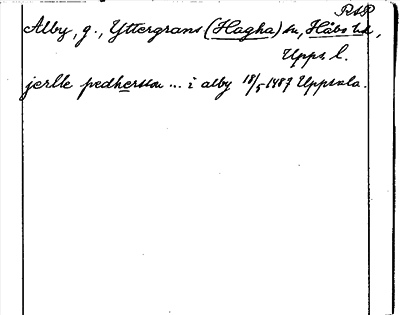 RAP
Alby, g., Yttergrans (Hagha) sn, Håbo hd,
Upps l.
jerlle pedhersson ... i alby 18/5 1487 Uppsala.